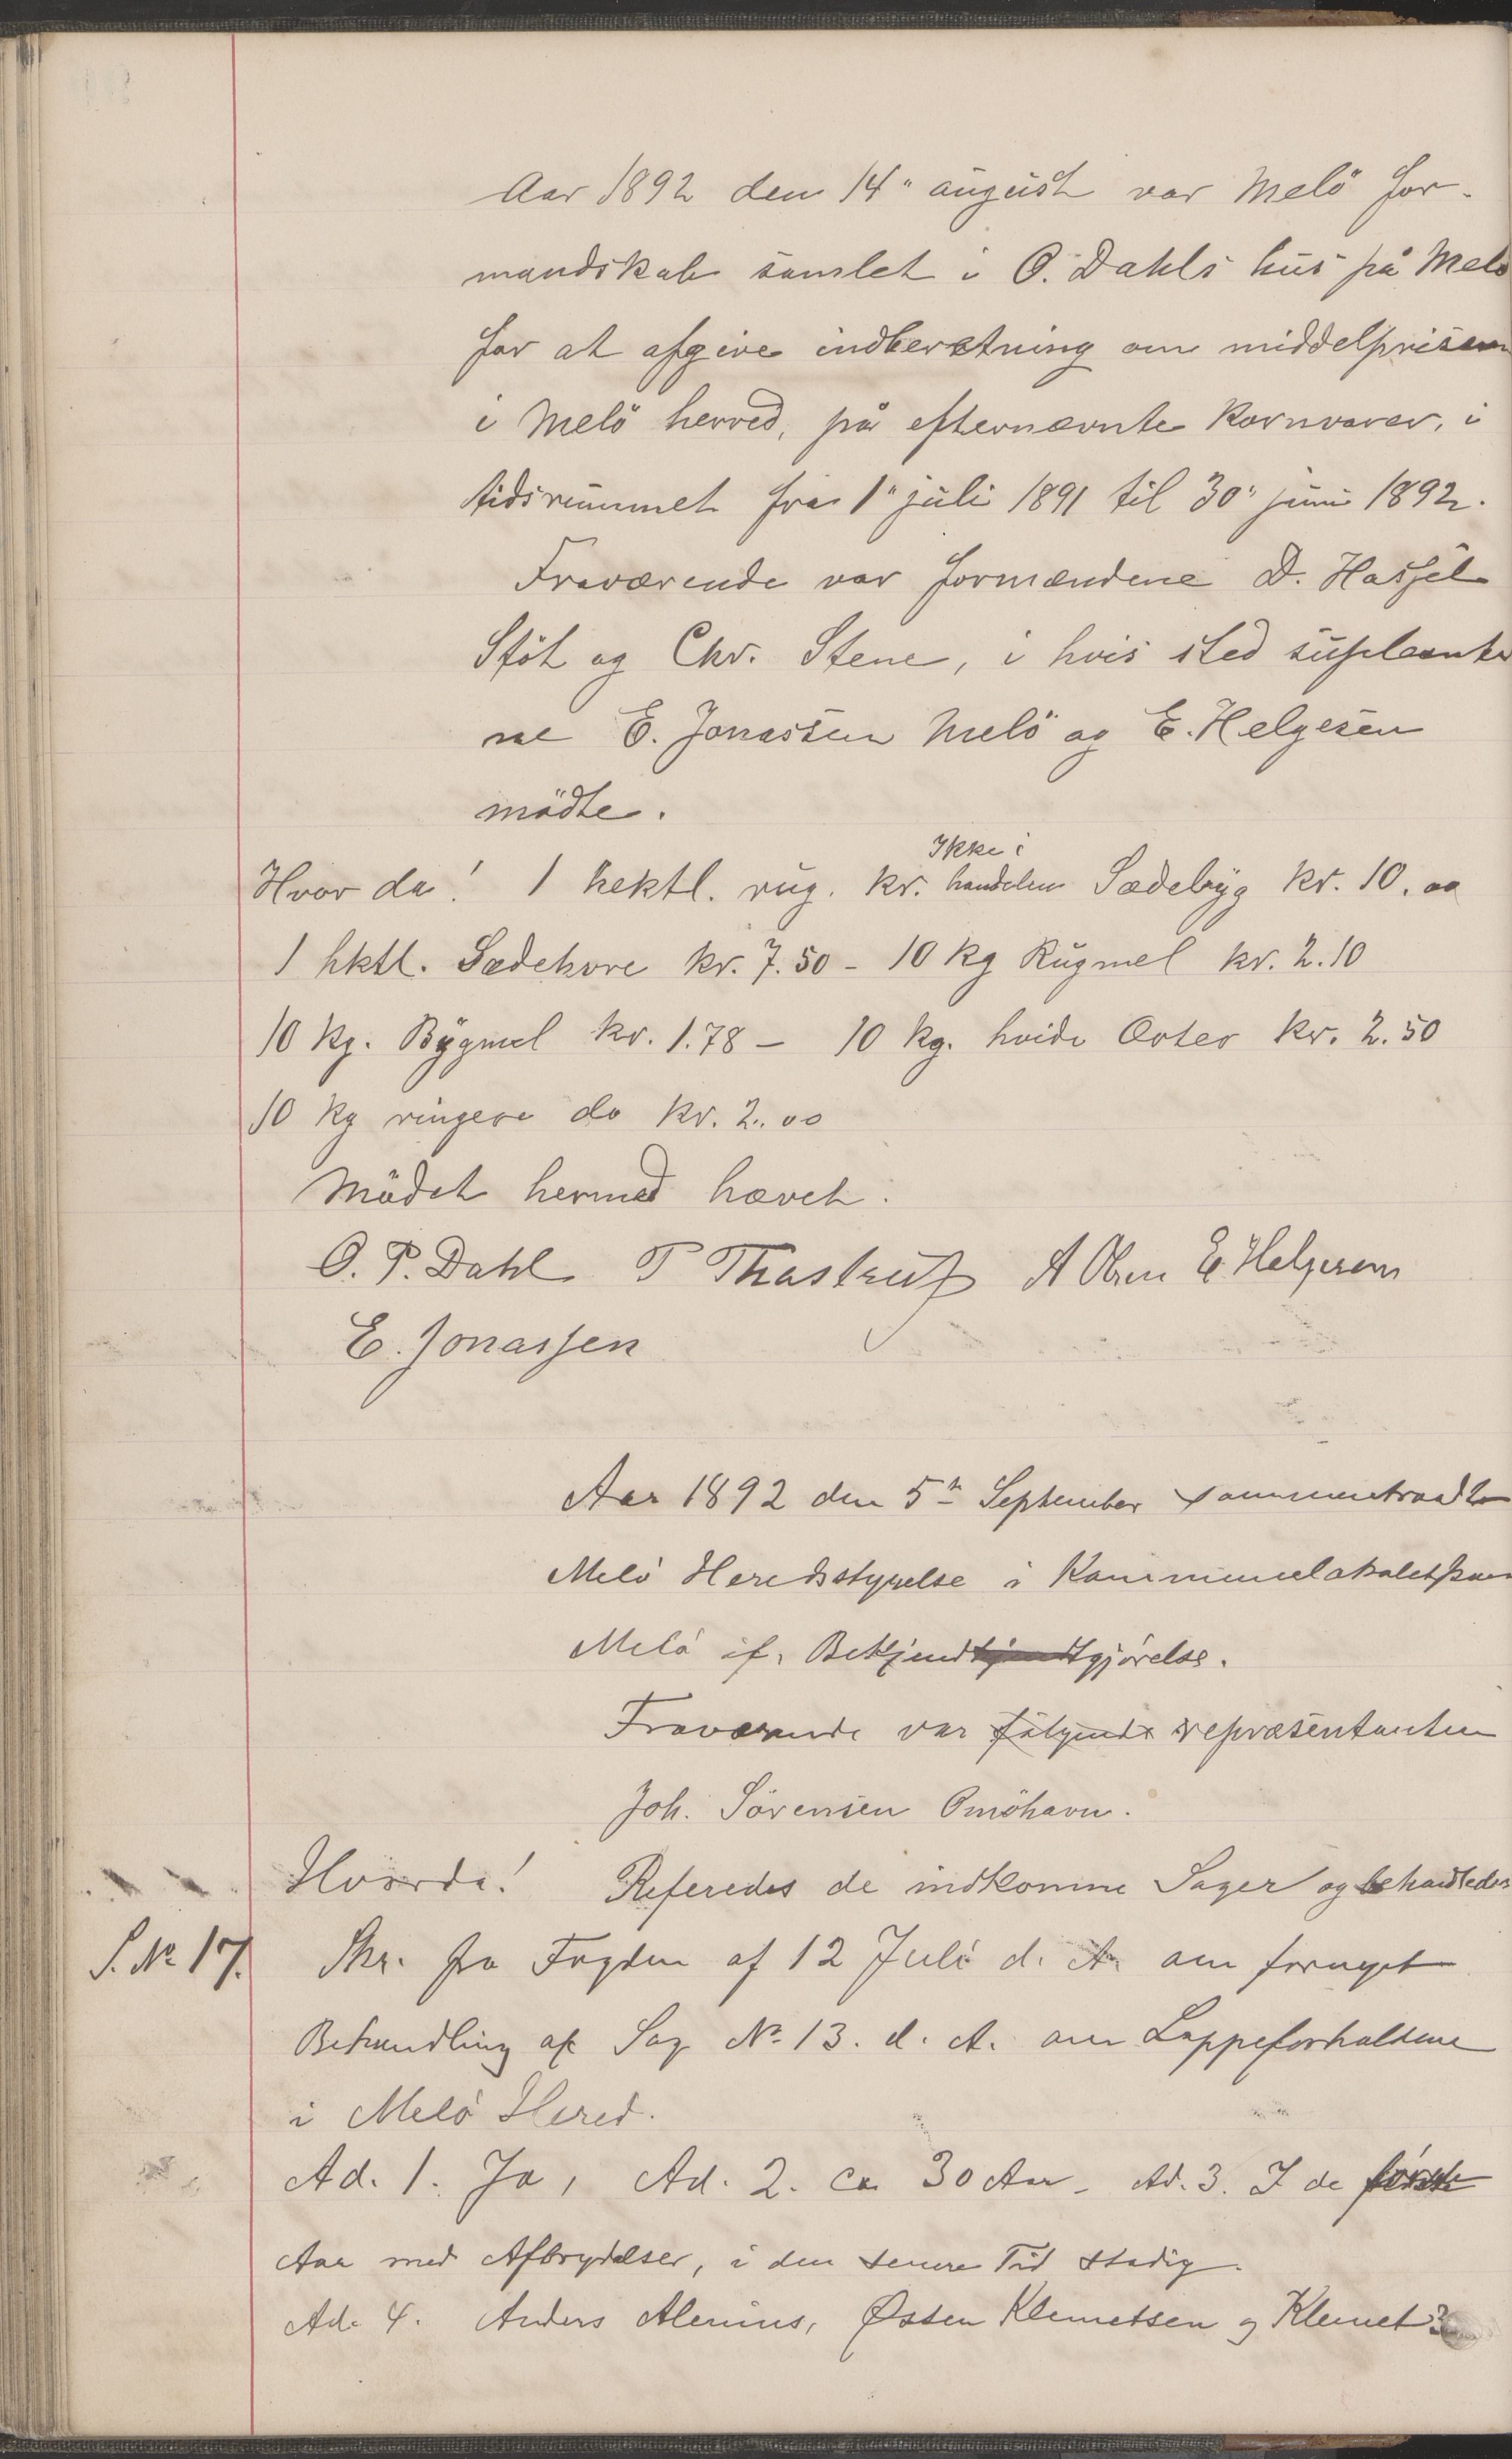 Aar 1892 den 14" august var Melö for-
mandskab samlet i O. Dahls hus på Melö
for at afgive indberetning om middelprisen
i Melö herred, på efternævnte Kornvarer, i
tidsrummet fra 1" juli 1891 til 30" juni 1892.
Fraværende var formændene D. Hassel
Stöt og Chr. Stene, i hvis sted suplеante
ne E. Jonassen Melö og E. Helgesen
mödte.
Ikke i
Hvor da! 1 hektl. rug. kr. handelen Sædebyg kr. 10.00
1 hktl. Sædehavre kr. 7.50 - 10 kg Rugmel kr. 2.10
10 kg. Bygmel kr. 1.78 - 10 kg. hvide Erter kr. 2.50
10 kg ringere do kr. 2.00
Mödet hermed hævet.
O. P. Dahl P Thastrup A Olsen E Helgesen
E. Jonassen
Aar 1892 den 5te September sammentraadte
Melö Heredsstyrelse i Kommunelokalet paa
Melö if. Bekjendtgjörelse.
Fraværende var fölgende repræsentanten
Joh. Sörensen Omöhavn.
Hvorda! Referedes de indkomne Sager og behandledes
S. No 17. Skr. fra Fogden af 12 Juli d. A. om fornyet
Behandling af Sag No 13. d. A. om Lappeforholdene
i Melö Hered.
Ad. 1. Ja, Ad. 2. ca 30 Aar - Ad. 3. I de förste
Aar med Afbrydelser, i den senere Tid stadig.
Ad. 4. Anders Alenius, Østen Klemetsen og Klemet